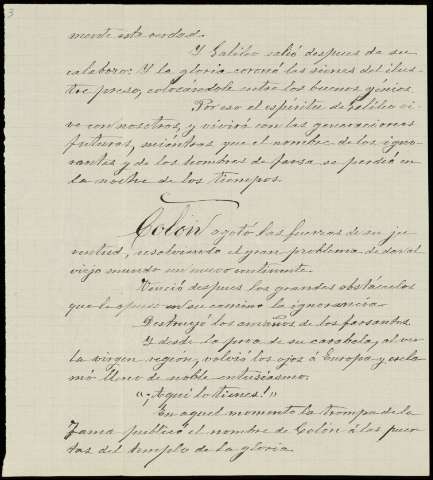 3
mente esta verdad.
Y Galileo salió despues de su
calabozo: Y la gloria coronó las sienes del ilus-
tre preso, colocándole entre los buenos génios.
Por eso el espíritu de Galileo vi-
ve con nosotros, y vivirá con las generaciones
futuras, miéntras que el nombre de los igno-
rantes y de los hombres de farsa se perdió en
la noche de los tiempos.
Colón agotó las fuerzas de su ju-
ventud, resolviendo el gran problema de dar al
viejo mundo un nuevo continente.
Venció despues los grandes obstáculos
que le opuso en su camino la ignorancia.
Destruyó los amaños de los farsantes.
Y desde la proa de su carabela, al ver
la vírgen región, volvió los ojos á Europa y escla-
mó lleno de noble entusiasmo.
"¡Aquí lo tienes!"
En aquel momento la trompa de la
Fama publicó el nombre de Colón á las puer-
tas del templo de la gloria.